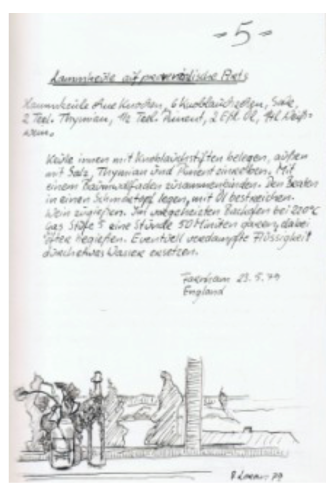 - 5 -
Lammkeule auf provenzalische Art
Lammkeule ohne Knochen, 6 Knoblauchzehen, Salz,
2 Teel. Thymian, 1/2 Teel. Piment, 2 Eßl. Öl, Weiß-
wein.
Keule innen mit Knoblauchstiften belegen, außen
mit Salz, Thymian und Piment einreiben. Mit
einem Baumwollfaden zusammenbinden. Den Braten
in einen Schmortopf legen, mit Öl bestreichen.
Wein zugießen. Im vorgeheizten Backofen bei 220°C
Gas Stufe 5 eine Stunde 50 Minuten garen, dabei
öfter begießen. Eventuell verdampfte Flüssigkeit
durch etwas Wasser ersetzen.
Farnham 23.5.79
England
79